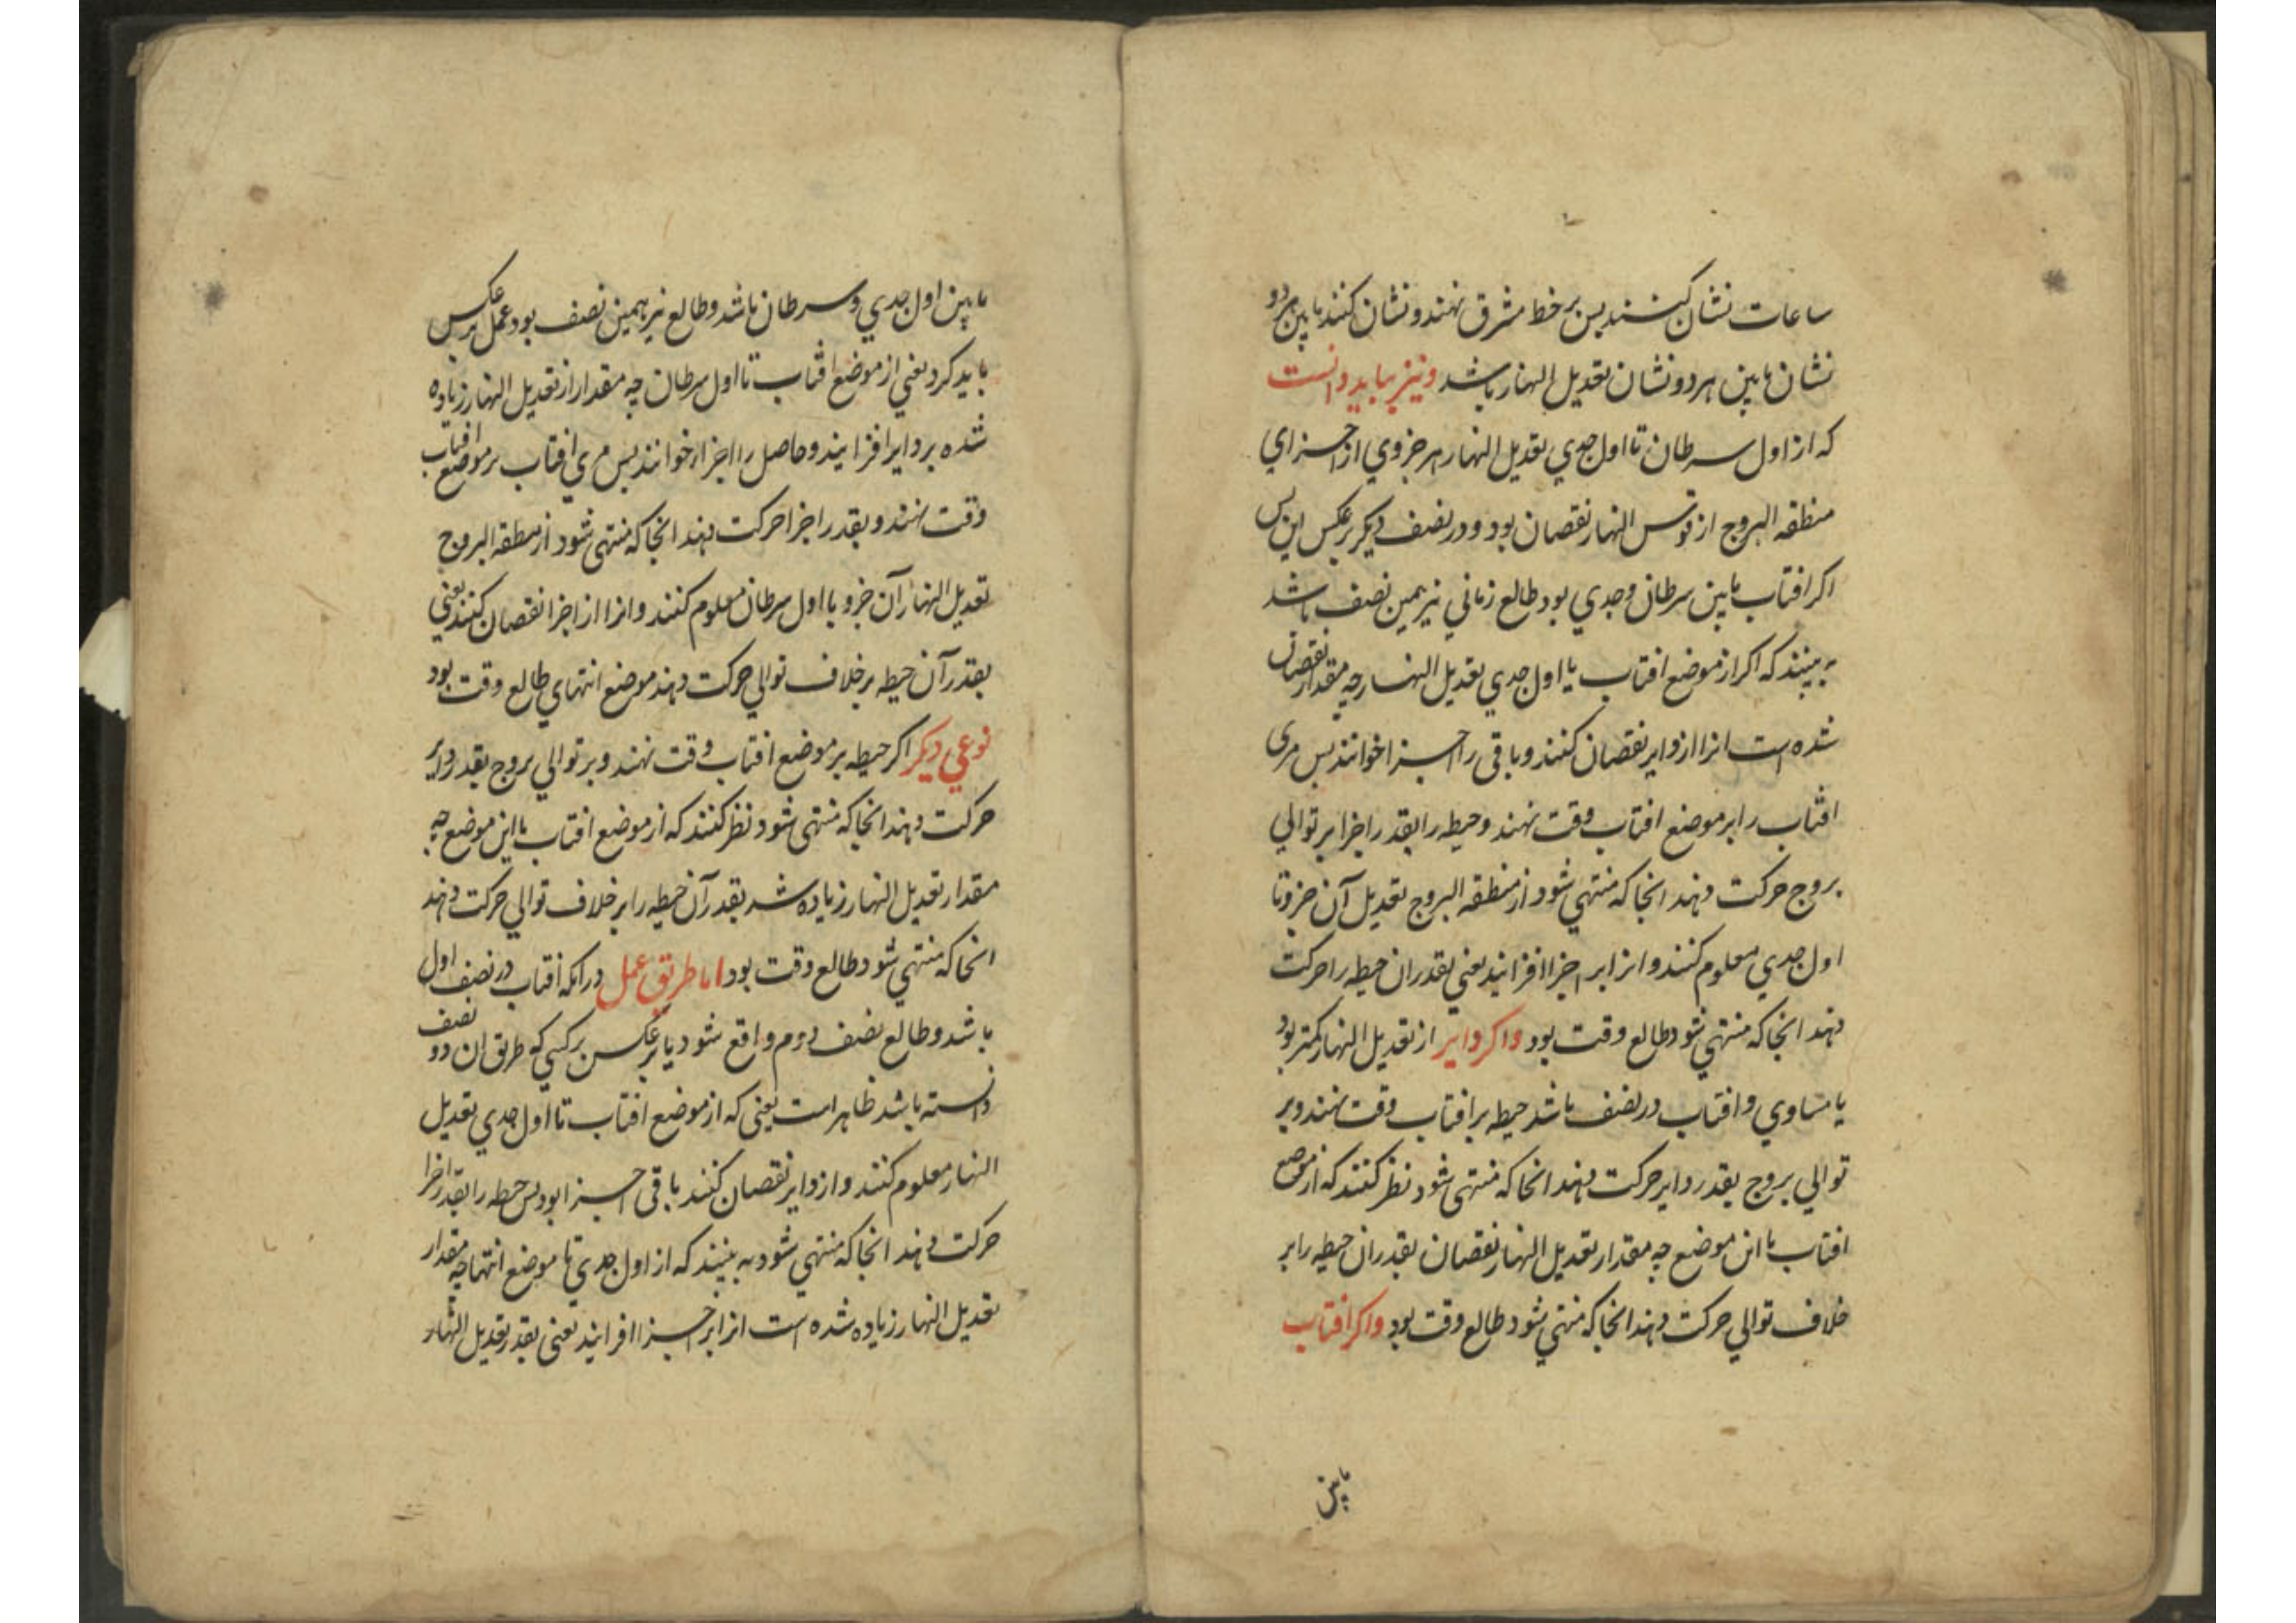 ساعات نشان کنند پس بر خط مشرق نهند و نشان کنند مابین هر دو
نشان مابین هر دو نشان تعدیل النهار باشد و نیز بباید دانست
که از اول سرطان تا اول جدی تعدیل النهار هر جزوی از اجزای
منطقه البروج از قوس النهار نقصان بود و در نصف دیگر بر عکس این پس
اکر افتاب مابین سرطان و جدی بود طالع زمانی نیز همین نصف باشد
به بینند که اکر از موضع افتاب یا اول جدی تعدیل النهار چه مقدار نقصان
شده است انرا از دایر نقصان کنند و باقی را اجزا خوانند پس مری
افتاب را بر موضع افتاب وقت نهند و حیطه را بقدر اجزا بر توالی
بروج حرکت دهند انجا که منتهی شود از منطقه البروج تعدیل آن جزو تا
اول جدی معلوم کنند و انرا بر اجزا افزایند یعنی بقدر ان حیطه را حرکت
دهند انجا که منتهی شود طالع وقت بود و اکر دایر از تعدیل النهار کمتر بود
یا مساوی و افتاب در نصف باشد حیطه بر افتاب وقت نهند و بر
توالی بروج بقدر دایر حرکت دهند انجا که منتهی شود نظر کنند که از موضع
افتاب با این موضع چه مقدار تعدیل النهار نقصان بقدر ان حیطه را بر
خلاف توالی حرکت دهند انجا که منتهی شود طالع وقت بود و اکر افتاب
مابین
مابین اول جدی و سرطان باشد و طالع نیز همین نصف بود عمل بر عکس
باید کرد یعنی از موضع افتاب تا اول سرطان چه مقدار از تعدیل النهار زیاده
شده بر دایر افزایند و حاصل را اجزا خوانند پس مری افتاب بر موضع افتاب
وقت نهند و بقدر اجزا حرکت دهند انجا که منتهی شود از منطقه البروج
تعدیل النهار آن جزو با اول سرطان معلوم کنند و انرا از اجزا نقصان کنند یعنی
بقدر آن حیطه بر خلاف توالی حرکت دهند موضع انتهای طالع وقت بود
نوعی دیکر اکر حیطه بر موضع افتاب وقت نهند و بر توالی بروج بقدر دایر
حرکت دهند انجا که منتهی شود نظر کنند که از موضع افتاب با این موضع چه
مقدار تعدیل النهار زیاده شد بقدر آن حیطه را بر خلاف توالی حرکت دهند
انجا که منتهی شود طالع وقت بود اما طریق عمل در انکه افتاب در نصف اول
باشد و طالع نصف دوم واقع شود یا بر عکس بر کسی که طریق ان دو نصف
دانسته باشد ظاهر است یعنی که از موضع افتاب تا اول جدی تعدیل
النهار معلوم کنند و از دایر نقصان کنند باقی اجزا بود پس حیطه را بقدر اجزا
حرکت دهند انجا که منتهی شود به بینند که از اول جدی تا موضع انتها چه مقدار
تعدیل النهار زیاده شده است انرا بر اجزا افزایند یعنی بقدر تعدیل النهار